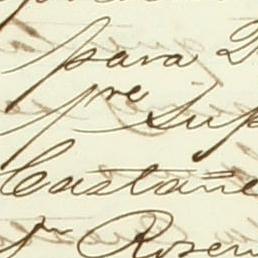 para D
pre Sup
Castañe
Jn Rosen